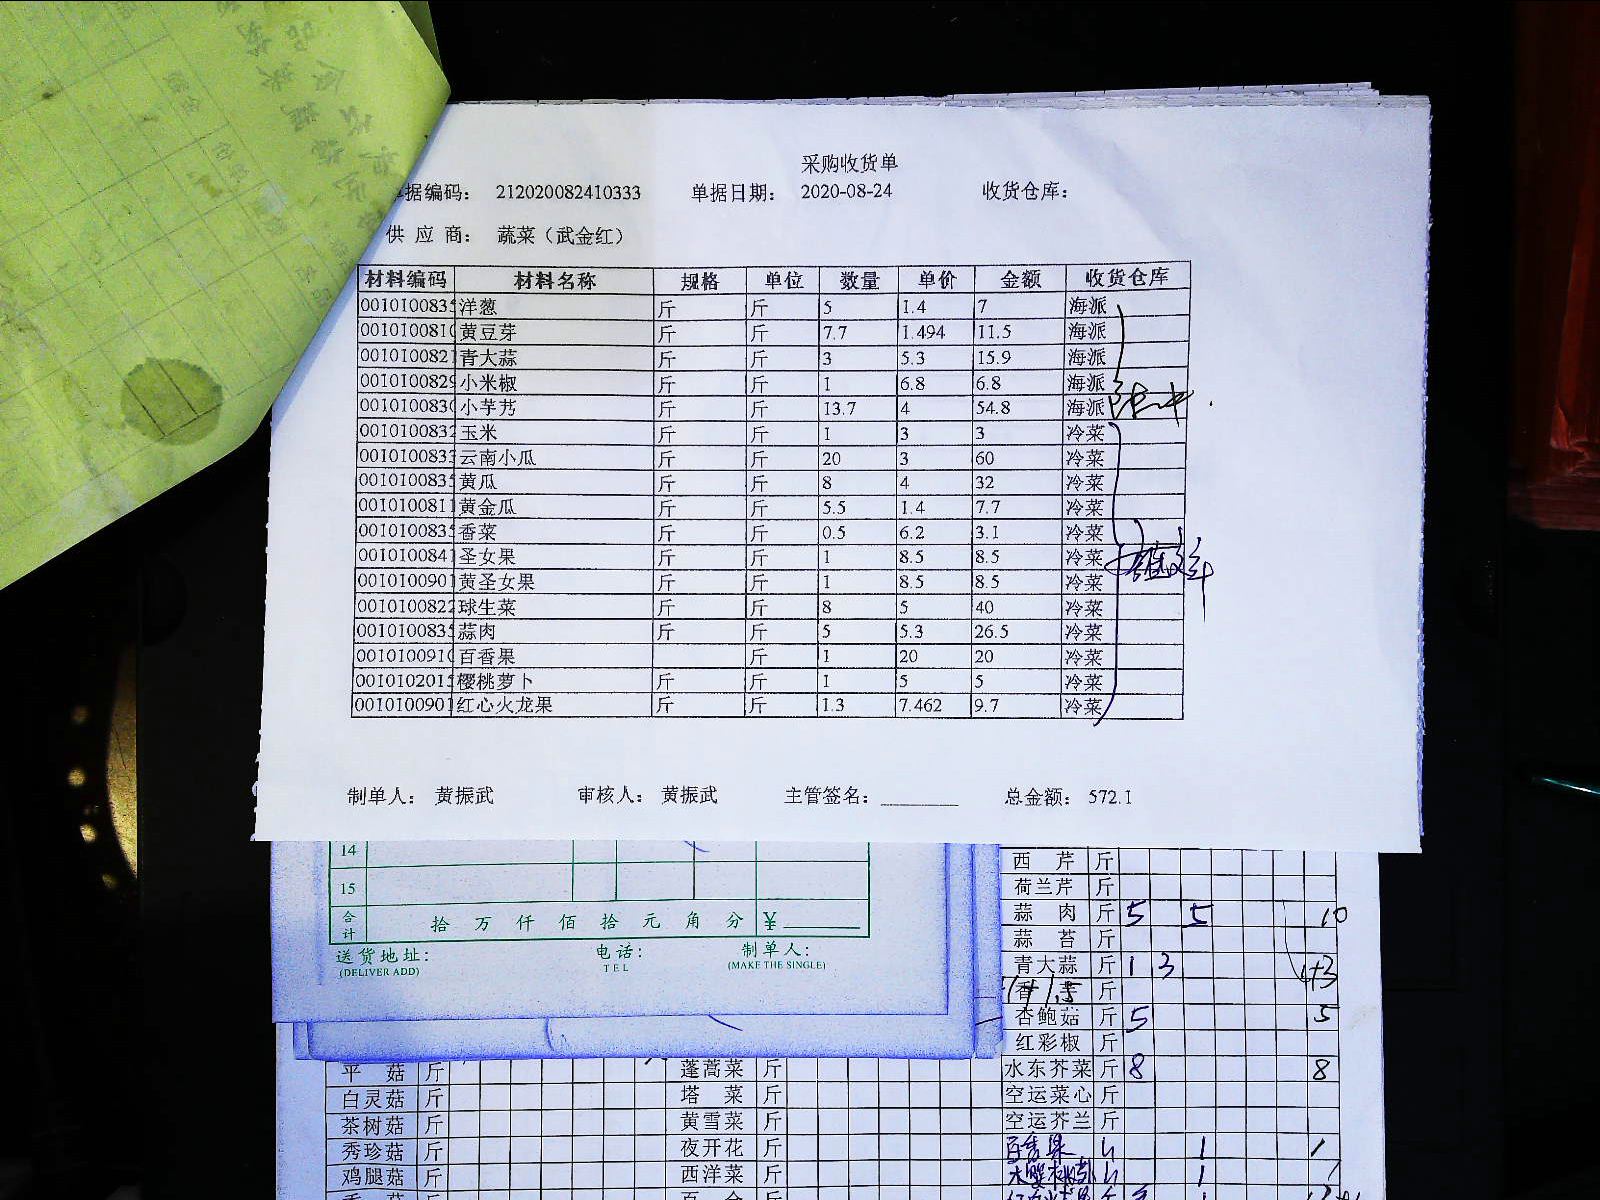 采购收货单
据编码： 212020082410333 单据日期： 2020-08-24 收货仓库：
供 应 商： 蔬菜（武金红）
材料编码 材料名称 规格 单位 数量 单价 金额 收货仓库
001010083 洋葱 斤 斤 5 1.4 7 海派
001010081 黄豆芽 斤 斤 7.7 1.494 11.5 海派
001010082 青大蒜 斤 斤 3 5.3 15.9 海派
001010082 小米椒 斤 斤 1 6.8 6.8 海派
001010083 小芋艿 斤 斤 13.7 4 54.8 海派
001010083 玉米 斤 斤 1 3 3 冷菜
001010083 云南小瓜 斤 斤 20 3 60 冷菜
001010083 黄瓜 斤 斤 8 4 32 冷菜
001010081 黄金瓜 斤 斤 5.5 1.4 7.7 冷菜
001010083 香菜 斤 斤 0.5 6.2 3.1 冷菜
001010084 圣女果 斤 斤 1 8.5 8.5 冷菜
001010090 黄圣女果 斤 斤 1 8.5 8.5 冷菜
001010082 球生菜 斤 斤 8 5 40 冷菜
001010083 蒜肉 斤 斤 5 5.3 26.5 冷菜
001010091 百香果 斤 1 20 20 冷菜
001010201 樱桃萝卜 斤 斤 1 5 5 冷菜
001010090 红心火龙果 斤 斤 1.3 7.462 9.7 冷菜
制单人： 黄振武 审核人： 黄振武 主管签名： 总金额： 572.1
14
15
合计 拾 万 仟 佰 拾 元 角 分 ¥
送货地址： 电话： 制单人：
(DELIVER ADD) TEL (MAKE THE SINGLE)
西 芹 斤
荷兰芹 斤
蒜 肉 斤 5 5 10
蒜 苔 斤
青大蒜 斤 1 3 1+3
斤
杏鲍菇 斤 5 5
红彩椒 斤
水东芥菜 斤 8 8
空运菜心 斤
空运芥兰 斤
百香果 1 1
1
平 菇 斤 蓬蒿菜 斤
白灵菇 斤 塔 菜 斤
茶树菇 斤 黄雪菜 斤
秀珍菇 斤 夜开花 斤
鸡腿菇 斤 西洋菜 斤